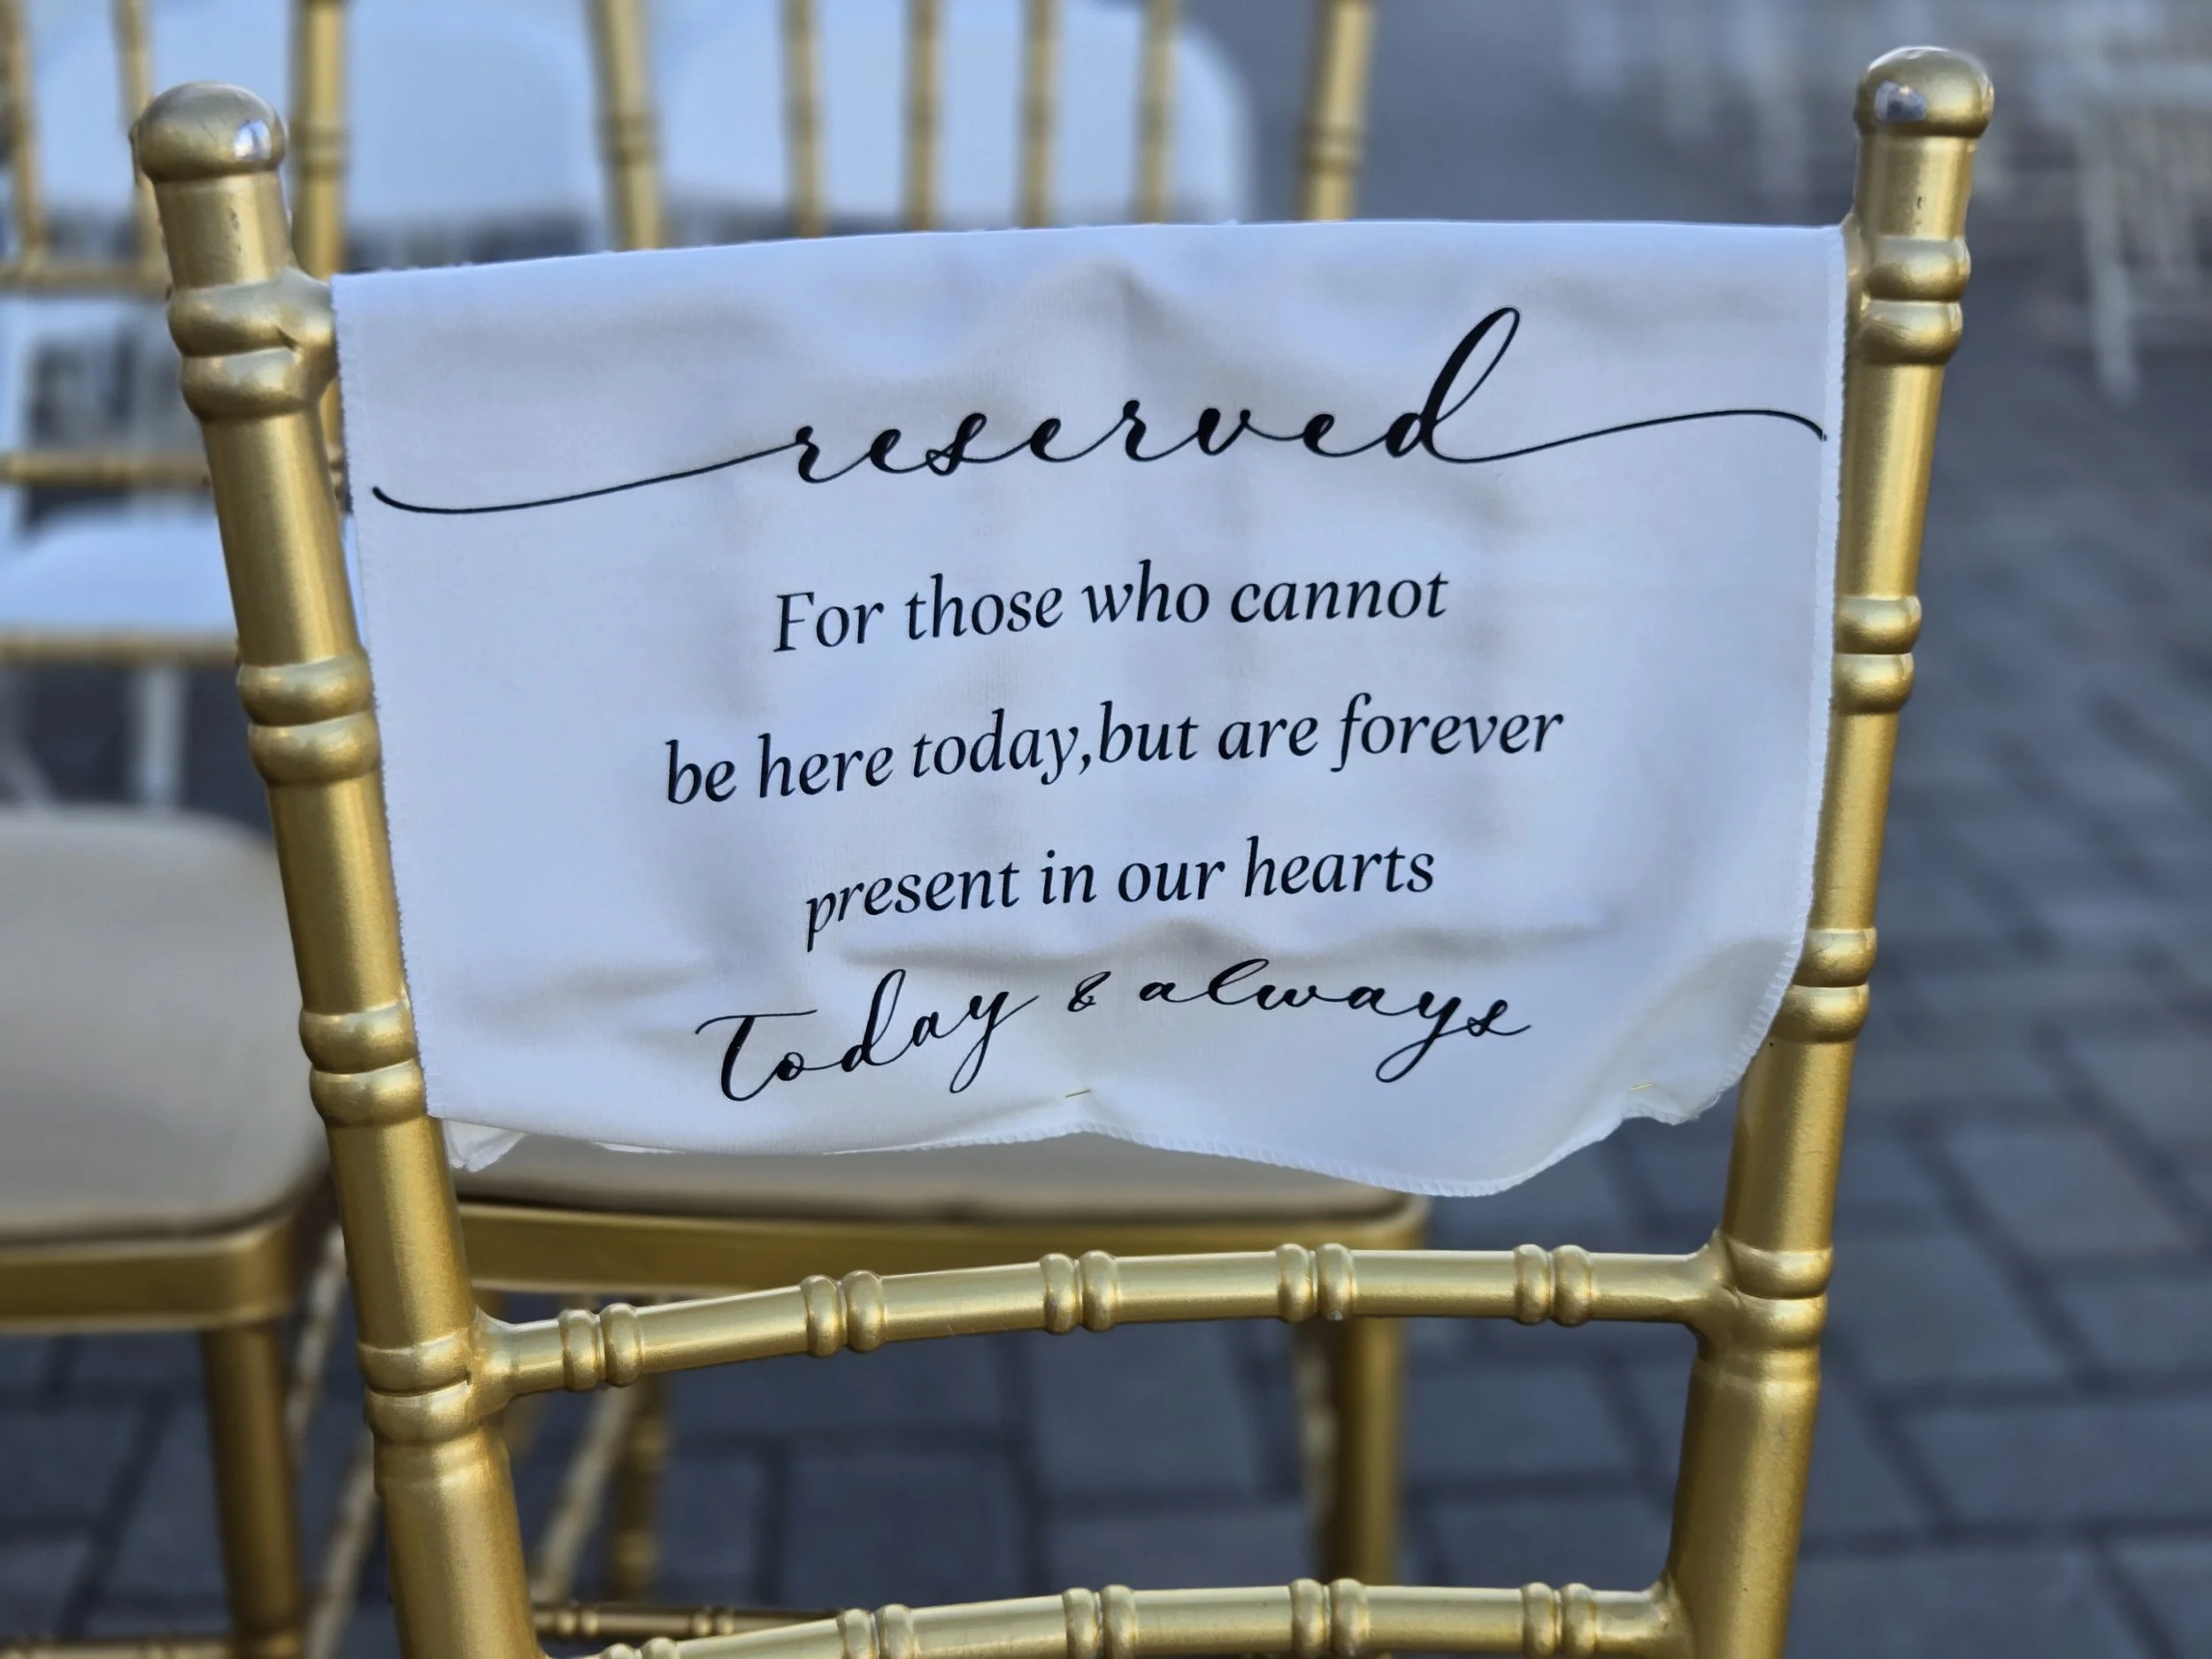 reserved
For those who cannot
be here today,but are forever
present in our hearts
Today & always